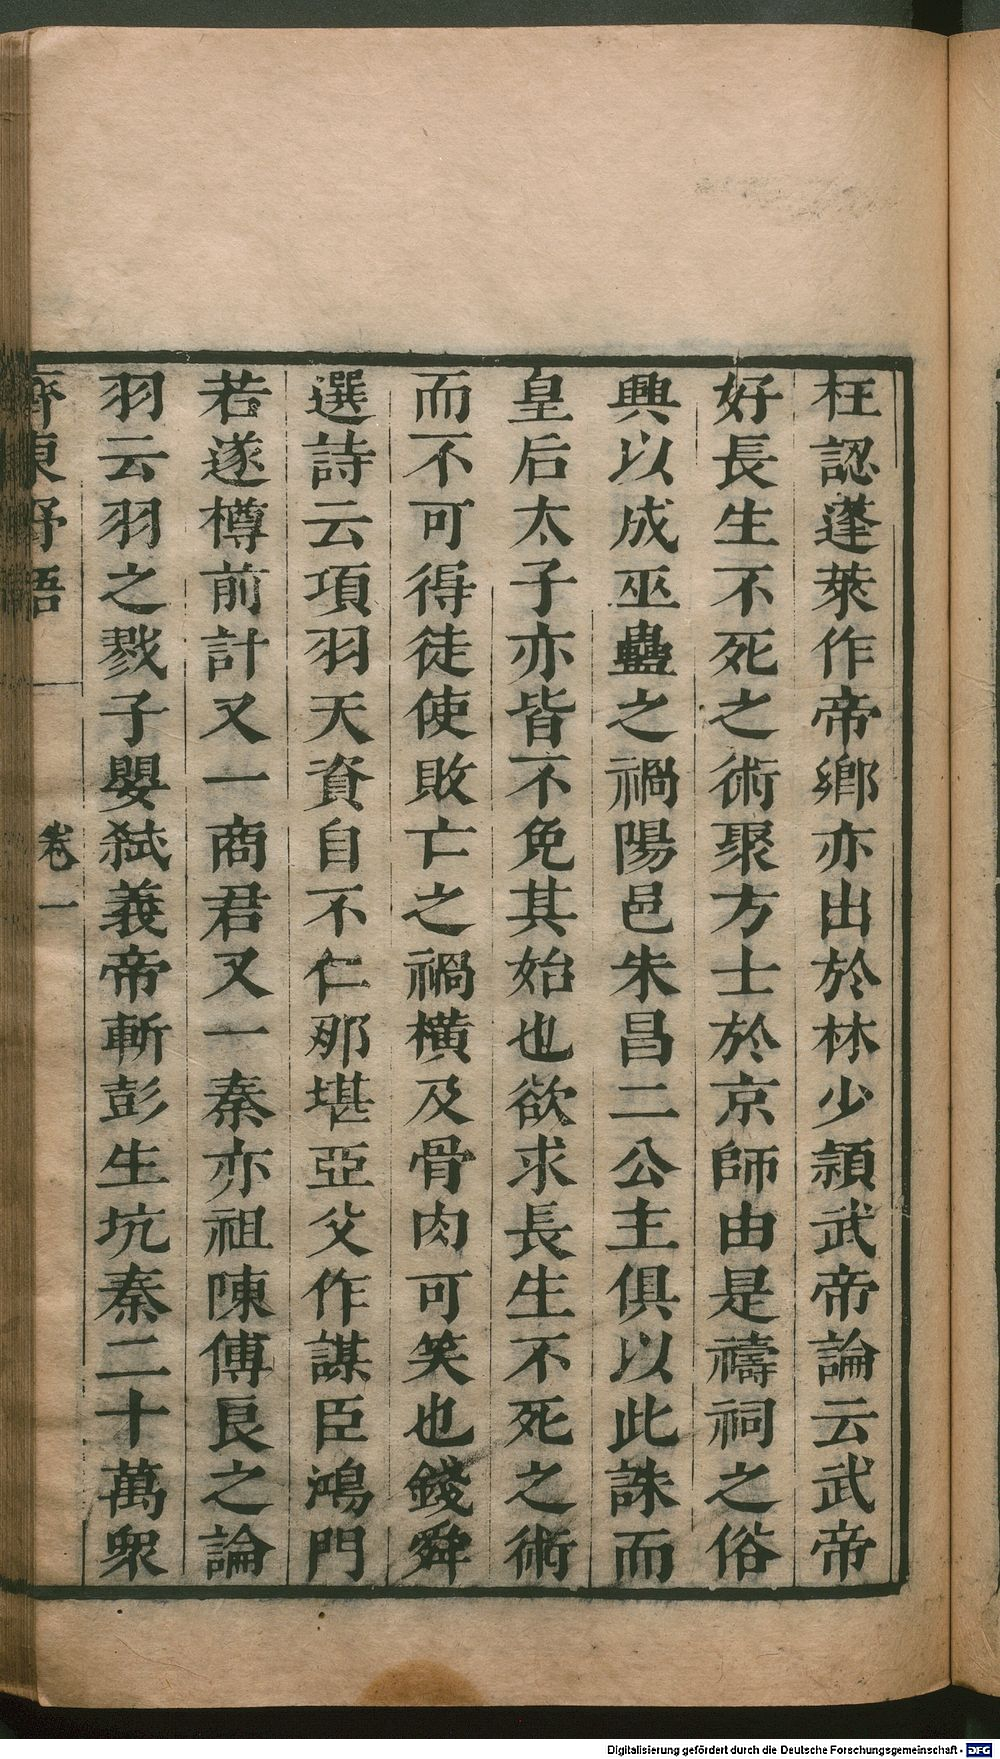 枉認蓬萊作帝鄉亦出於林少潁武帝論云武帝
好長生不死之術聚方士於京師由是禱祠之俗
興以成巫蠱之禍陽邑朱昌二公主俱以此誅而
皇后太子亦皆不免其始也欲求長生不死之術
而不可得徒使敗亡之禍橫及骨肉可笑也錢舜
選詩云項羽天資自不仁那堪亞父作謀臣鴻門
若遂樽前計又一商君又一秦亦祖陳傅良之論
羽云羽之戮子嬰弒義帝斬彭生坑秦二十萬眾
齊東野語 卷一
Digitalisierung gefördert durch die Deutsche Forschungsgemeinschaft - DFG